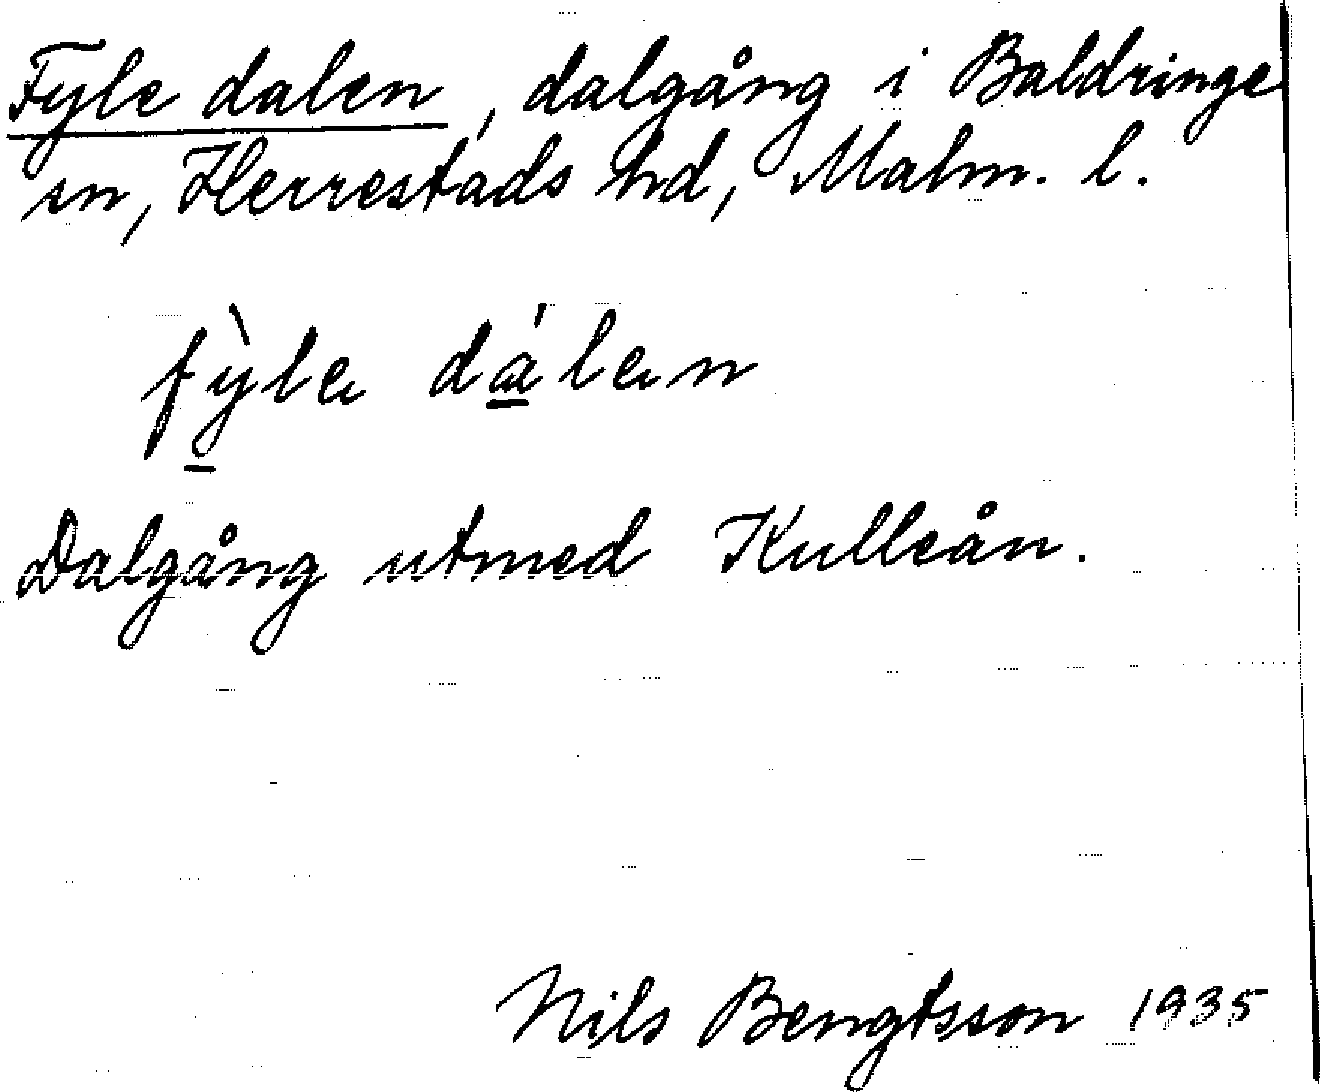 Fyle dalen, dalgång i Baldringe
sn, Herrestads hd, Malm. l.
fỳle dálen
Dalgång utmed Kulleån.
Nils Bengtsson 1935